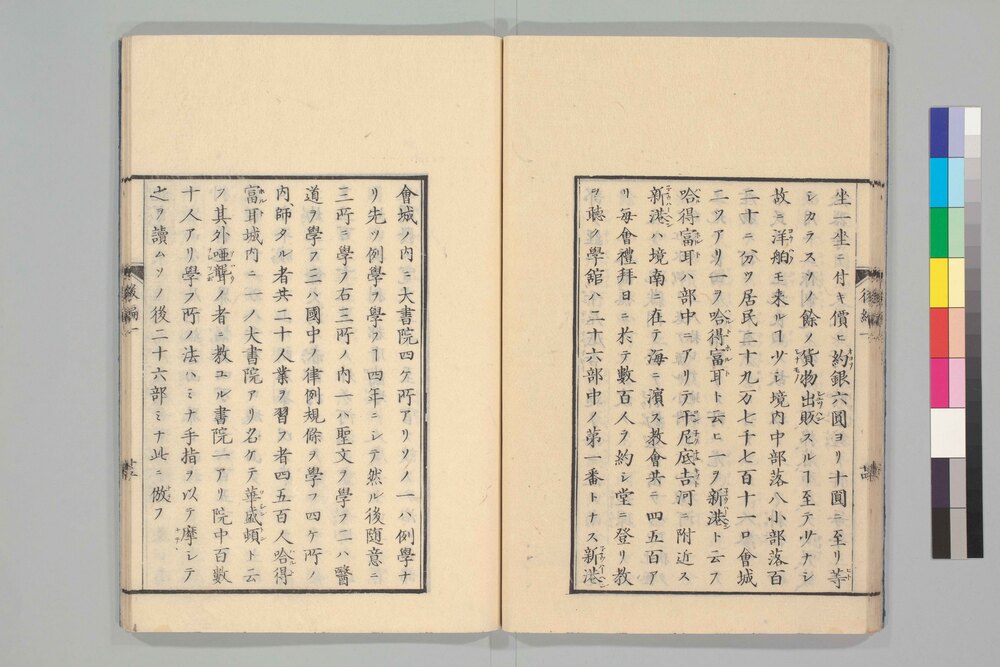 坐一坐ニ付キ價ヒ約銀六圓ヨリ十圓ニ至リ等
シカラスソノ餘ノ貨物出販スルヿ至テ少ナシ
故ニ洋舶モ来ルヿ少シ境内中部落八小部落百
二十ニ分ツ居民二十九万七千七百十一口會城
二ツアリ一ヲ哈得富耳ト云ヒ一ヲ新港ト云フ
哈得富耳ハ部中ニアリテ干尼底吉河ニ附近ス
新港ハ境南ニ在テ海ニ濱ス教會共ニ四五百ア
リ毎會禮拜日ニ於テ數百人ヲ約シ堂ニ登リ教
ヲ聽ク學舘ハ二十六部中ノ第一番トナス新港
會城ノ内ニ大書院四ケ所アリソノ一ハ例學ナ
リ先ツ例學ヲ學フヿ四年ニシテ然ル後随意ニ
三所ニ學フ右三所ノ内一ハ聖文ヲ學フ二ハ醫
道ヲ學フ三ハ國中ノ律例規條ヲ學フ四ケ所ノ
内師タル者共二十人業ヲ習フ者四五百人哈得
富耳城内ニ一ノ大書院アリ名ケテ華盛頓ト云
フ其外唖聾ノ者ニ教ユル書院一アリ院中百數
十人アリ學フ所ノ法ハミナ手指ヲ以テ摩シテ
之ヲ讀ムソノ後二十六部ミナ此ニ倣フ
後編一